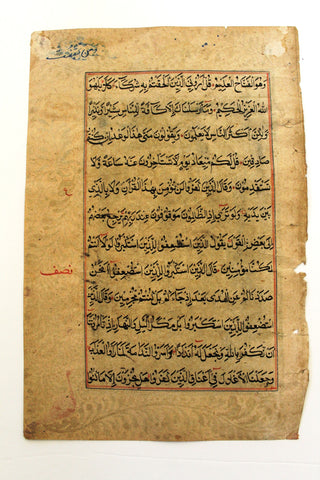 وهو الفتاح العليم قل أروني الذين ألحقتم به شركاء كلا بل هو
الله العزيز الحكيم وما أرسلناك إلا كافة للناس بشيرا ونذيرا
ولكن أكثر الناس لا يعلمون ويقولون متى هذا الوعد إن كنتم
صادقين قل لكم ميعاد يوم لا تستأخرون عنه ساعة ولا
تستقدمون وقال الذين كفروا لن نؤمن بهذا القرآن ولا بالذي
بين يديه ولو ترى إذ الظالمون موقوفون عند ربهم يرجع بعضهم
إلى بعض القول يقول الذين استضعفوا للذين استكبروا لولا أنتم
لكنا مؤمنين قال الذين استكبروا للذين استضعفوا أنحن
نصف
صددناكم عن الهدى بعد إذ جاءكم بل كنتم مجرمين وقال الذين
استضعفوا للذين استكبروا بل مكر الليل والنهار إذ تأمروننا
أن نكفر بالله ونجعل له أندادا وأسروا الندامة لما رأوا العذاب
وجعلنا الأغلال في أعناق الذين كفروا هل يجزون إلا ما كانوا